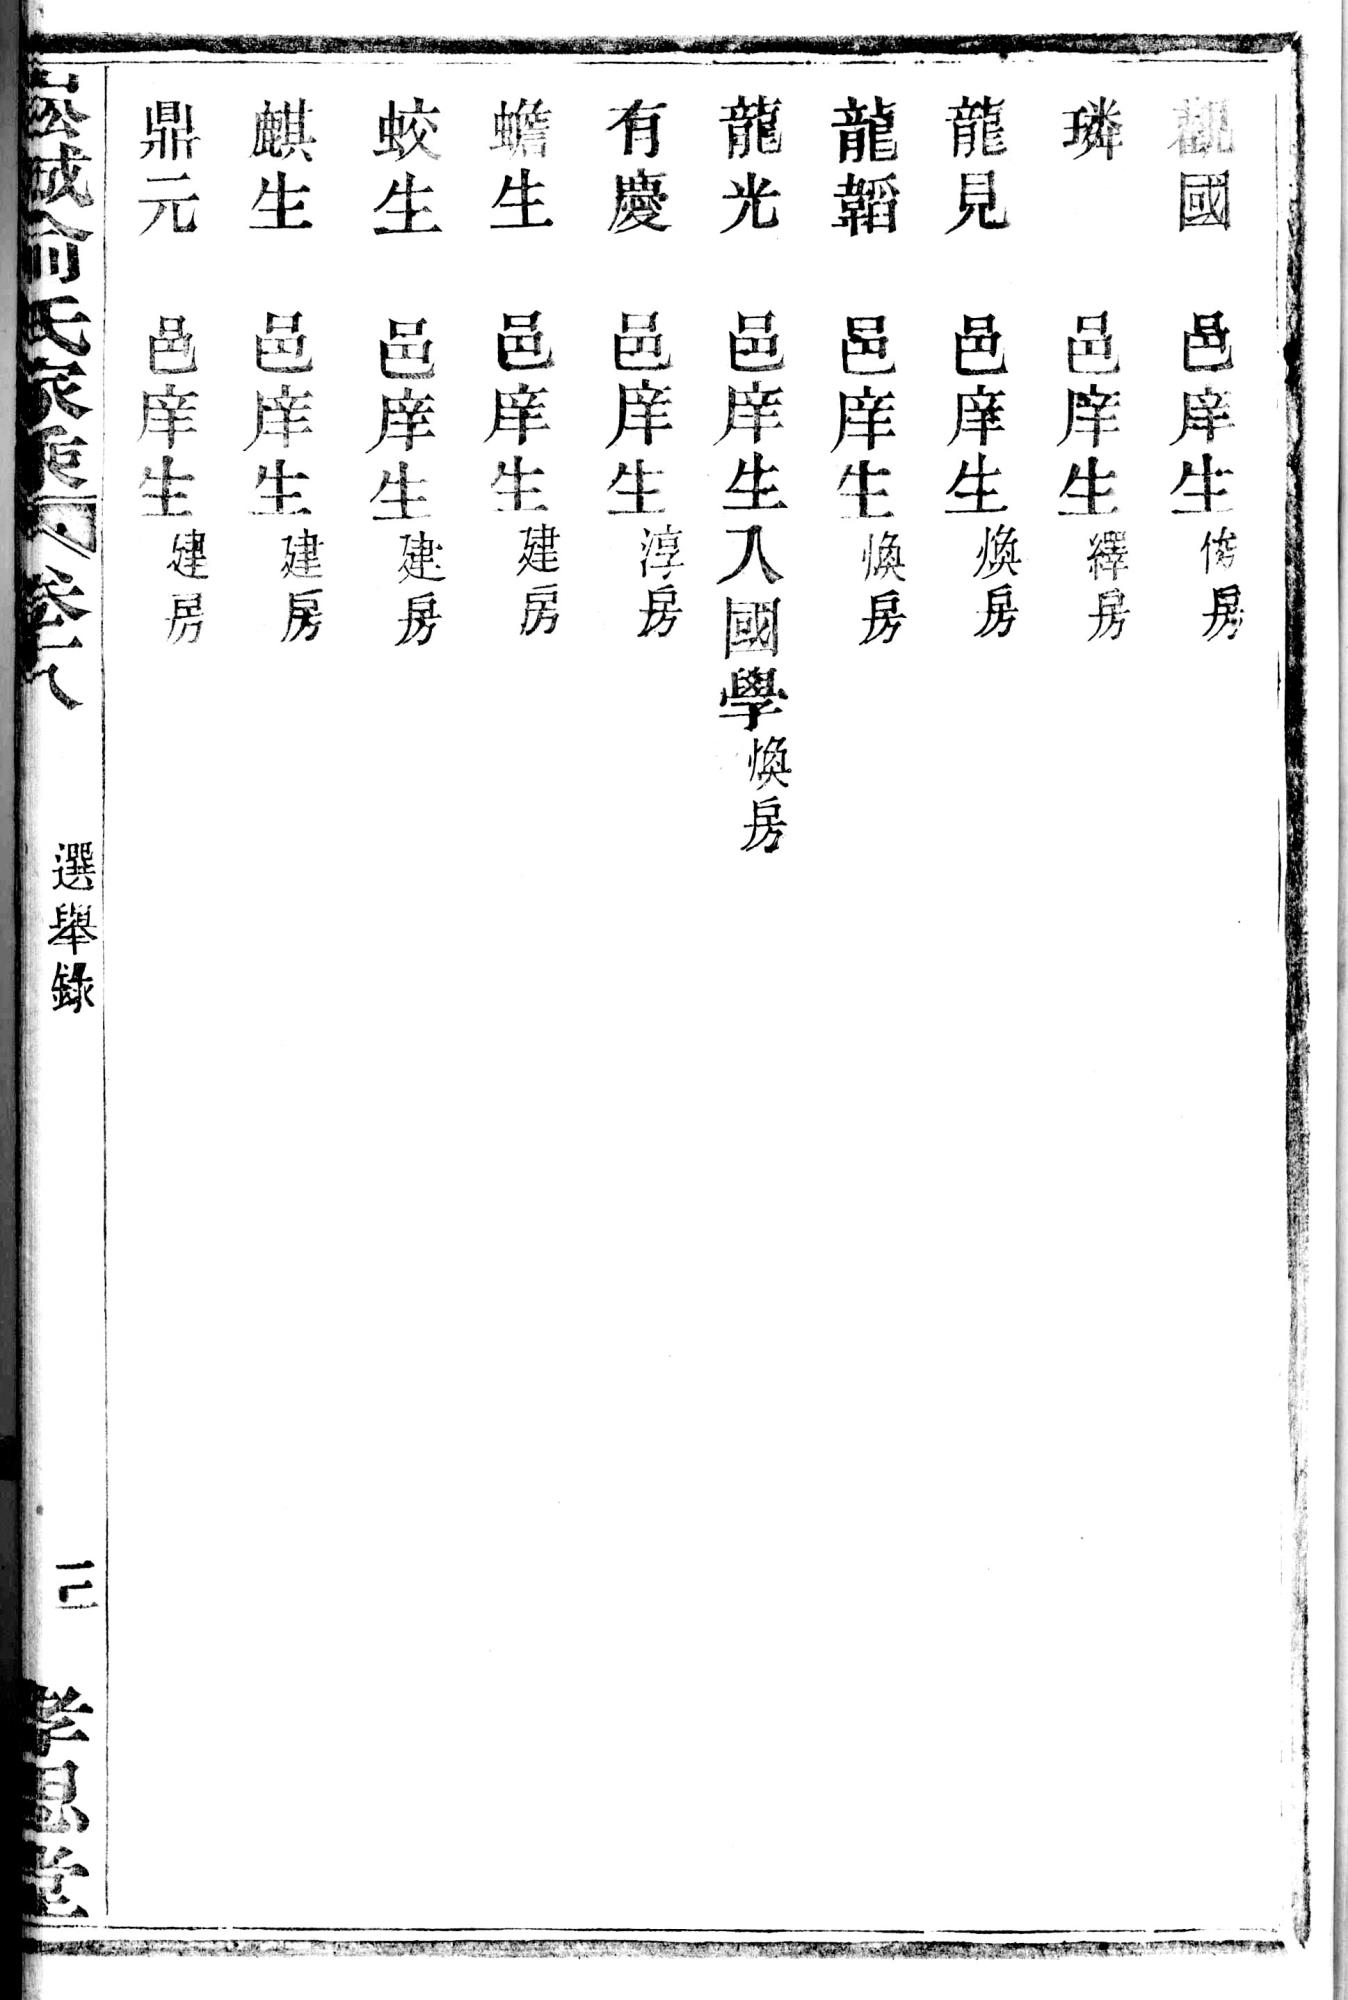 觀國　邑庠生俊房
璘　邑庠生繹房
龍見　邑庠生煥房
龍韜　邑庠生煥房
龍光　邑庠生入國學煥房
有慶　邑庠生淳房
蟾生　邑庠生建房
蛟生　邑庠生建房
麒生　邑庠生建房
鼎元　邑庠生建房
崧城俞氏家乘　卷十八　選舉錄　三　孝思堂